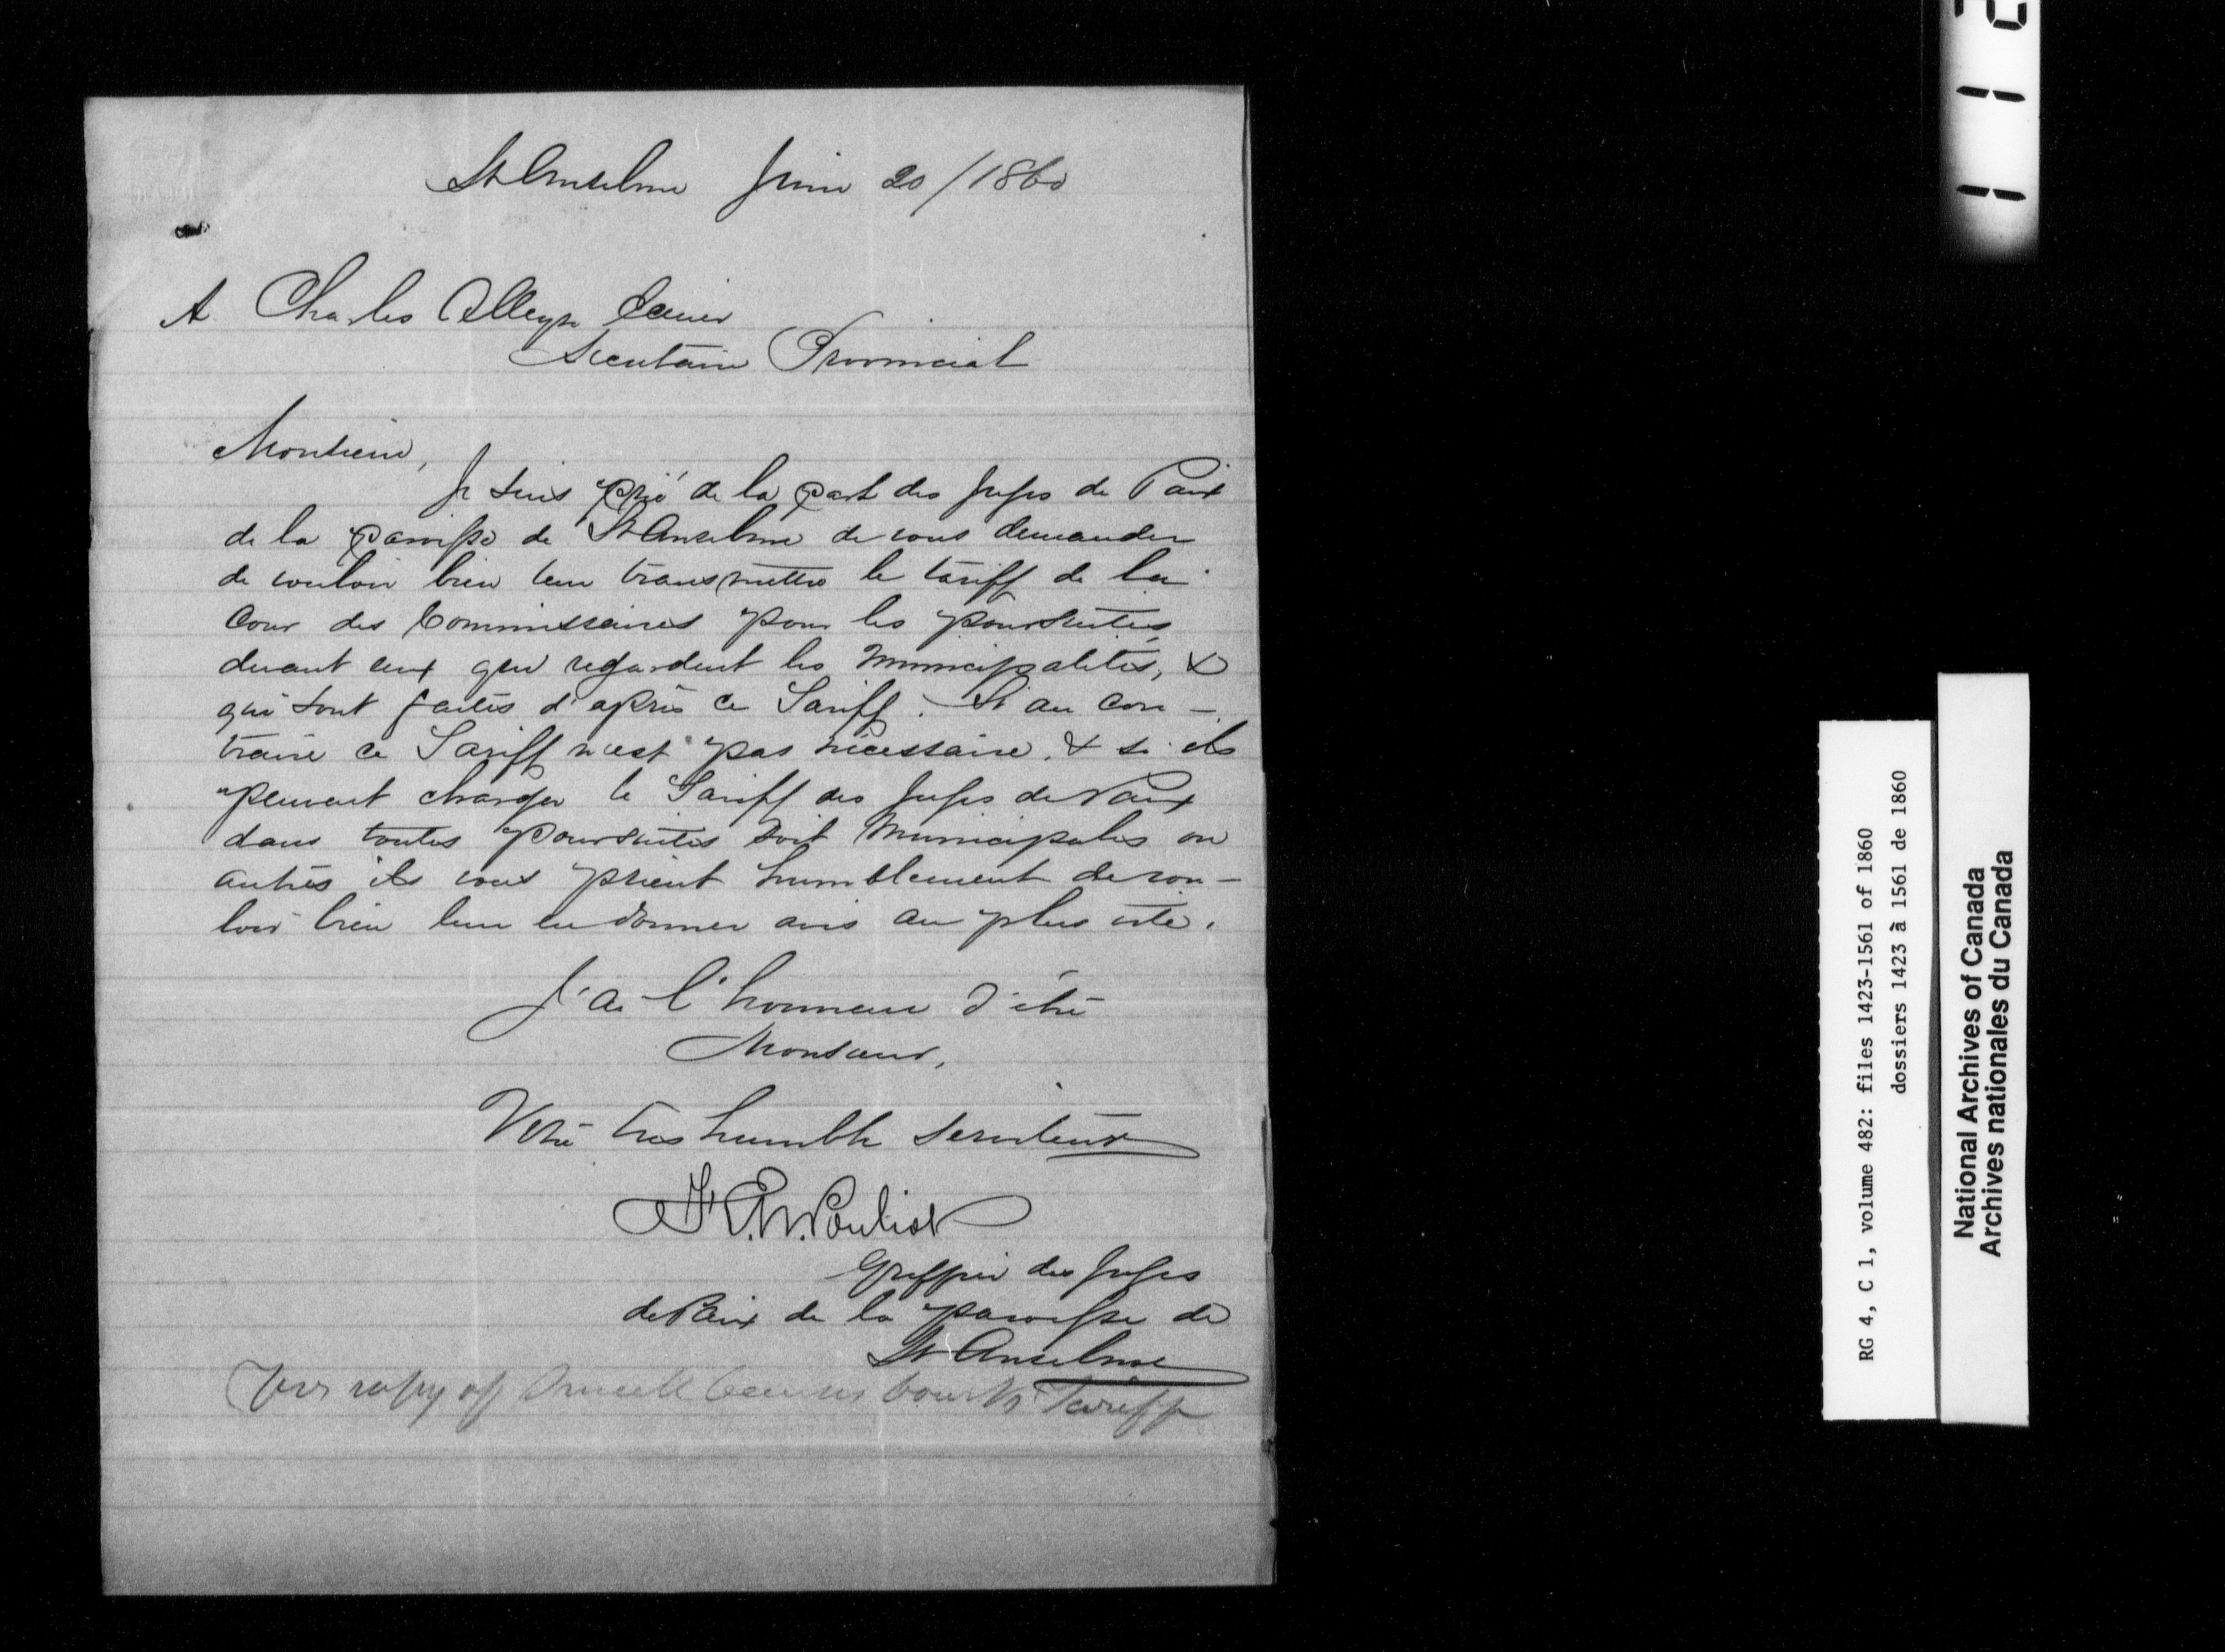 St Anselme Juin 20/1860
A Charles Alleyn Ecuier
Secretaire Provincial
Monsieur,
Je suis prié de la part des Juges de Paix
de la paroisse de St Anselme de vous demander
de vouloir bien leur transmettre le tariff de la
Cour des Commissaires pour les poursuites
devant eux qui regardent les Municipalités, &
qui sont faites d'après ce Tariff. Si au con-
traire ce Tariff n'est pas nécessaire, & si ils
peuvent charger le Tariff des Juges de Paix
dans toutes poursuites soit Municipales ou
autres ils vous prient humblement de vou-
loir bien leur en donner avis au plus vite.
J'ai l'honneur d'être
Monsieur,
Votre très humble serviteur
Pouliot
Greffier des Juges
de Paix de la paroisse de
St Anselme
copy of Small Causes Court Tariff
RG 4, C 1, volume 482: files 1423-1561 of 1860
dossiers 1423 à 1561 de 1860
National Archives of Canada
Archives nationales du Canada